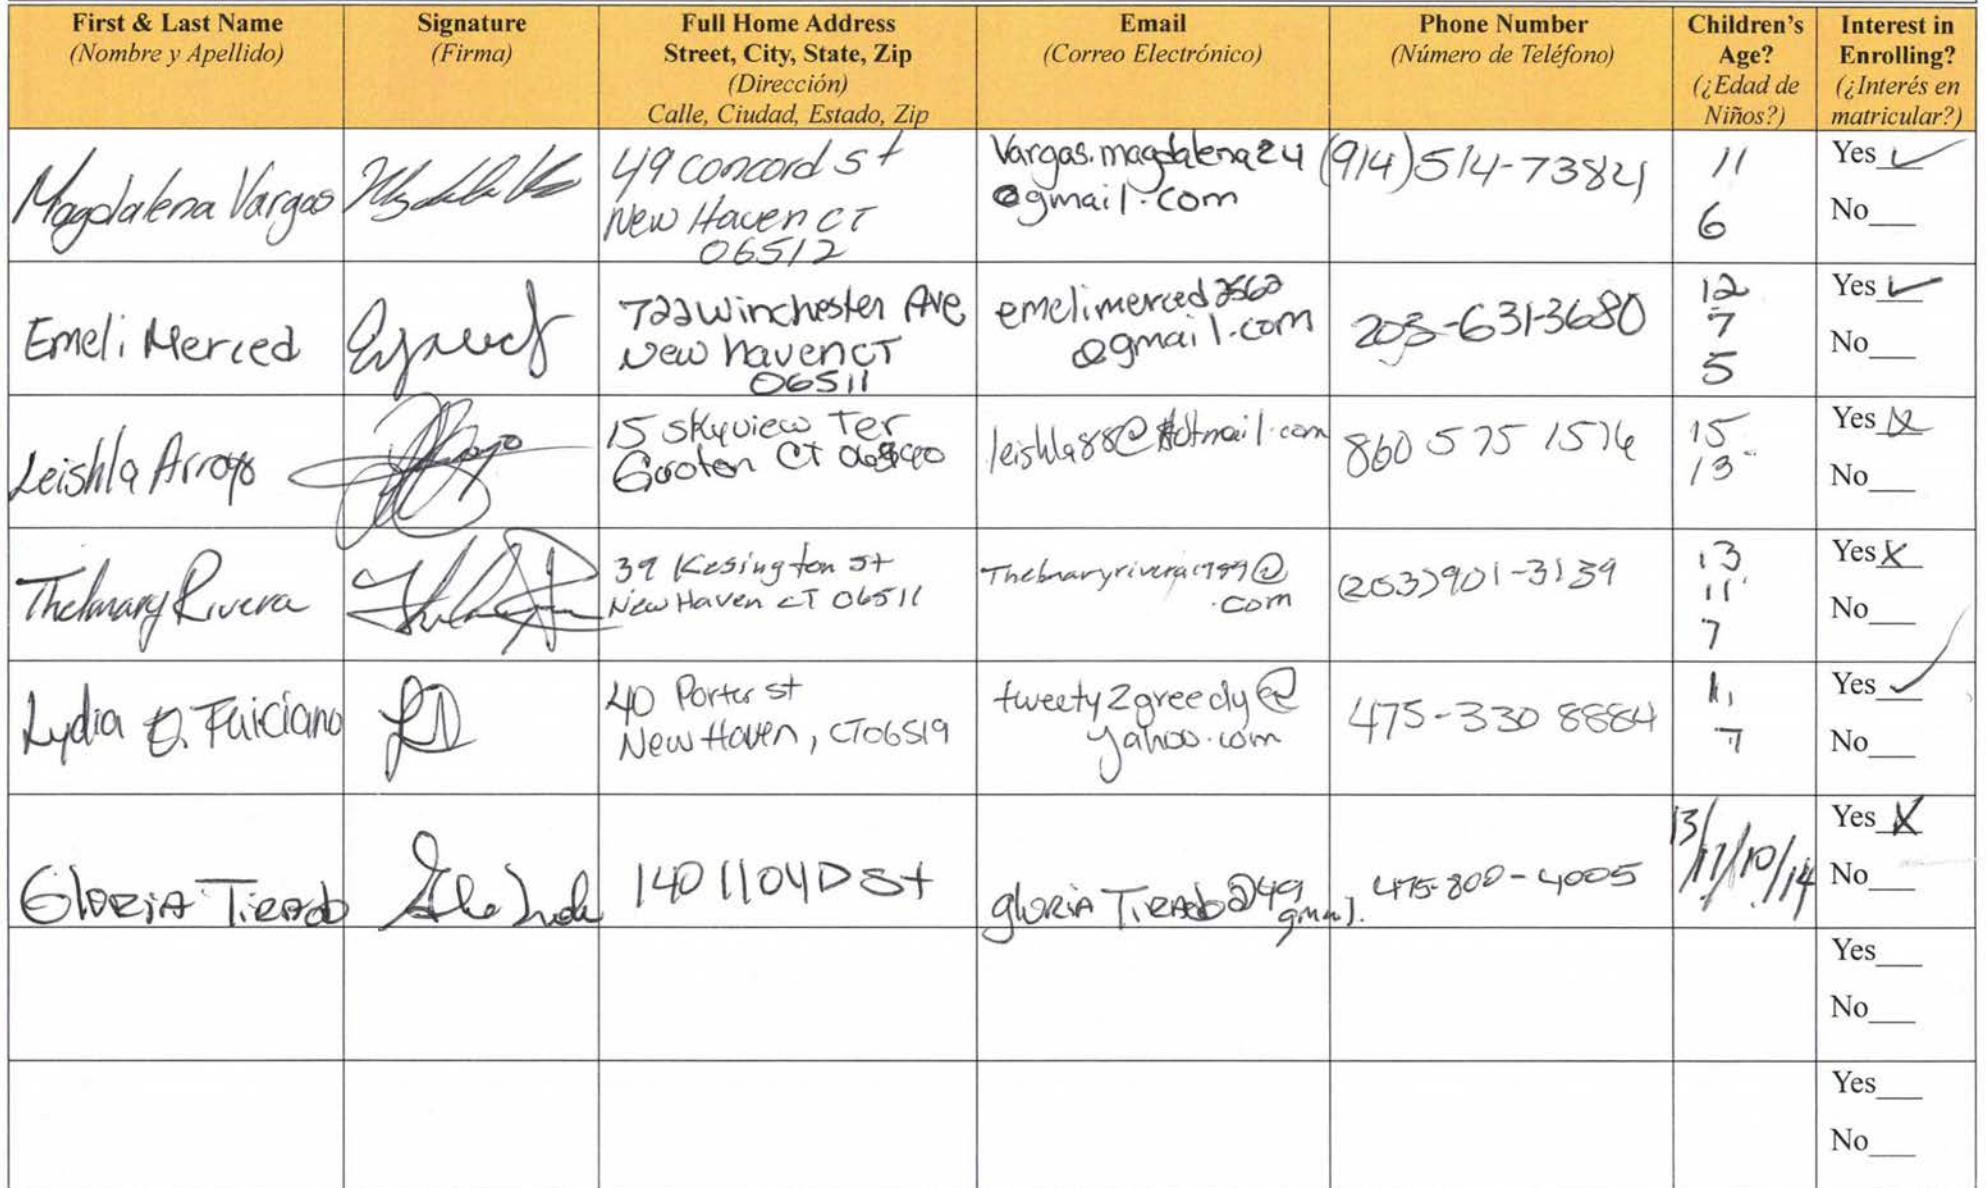 First & Last Name
(Nombre y Apellido)
Signature
(Firma)
Full Home Address
Street, City, State, Zip
(Dirección)
Calle, Ciudad, Estado, Zip
Email
(Correo Electrónico)
Phone Number
(Número de Teléfono)
Children's
Age?
(¿Edad de
Niños?)
Interest in
Enrolling?
(¿Interés en
matricular?)
Magdalena Vargas
49 concord st
New Haven CT
06512
Vargas.magdalena24
@gmail.com
(914)514-7382
11
6
Yes ✓
No
Emeli Merced
722 Winchester Ave
New haven CT
06511
emelimerced2562
@gmail.com
203-631-3680
12
7
5
Yes ✓
No
Leishla Arroyo
15 skyview Ter
Groton CT
leishla88@Hotmail.com
860 575 1576
15
13
Yes X
No
Thelmary Rivera
39 Kesington st
New Haven CT 06511
Thelmaryrivera1999@
.com
(203)901-3139
13
11
7
Yes X
No
Lydia E. Faiciano
40 Porter st
New Haven, CT06519
tweety2greedy@
yahoo.com
475-330 8884
11,
7
Yes ✓
No
Gloria Tirado
140 St
gloria Tirado@49
gmail.
475-800-4005
13/11/10/14
Yes X
No
Yes
No
Yes
No